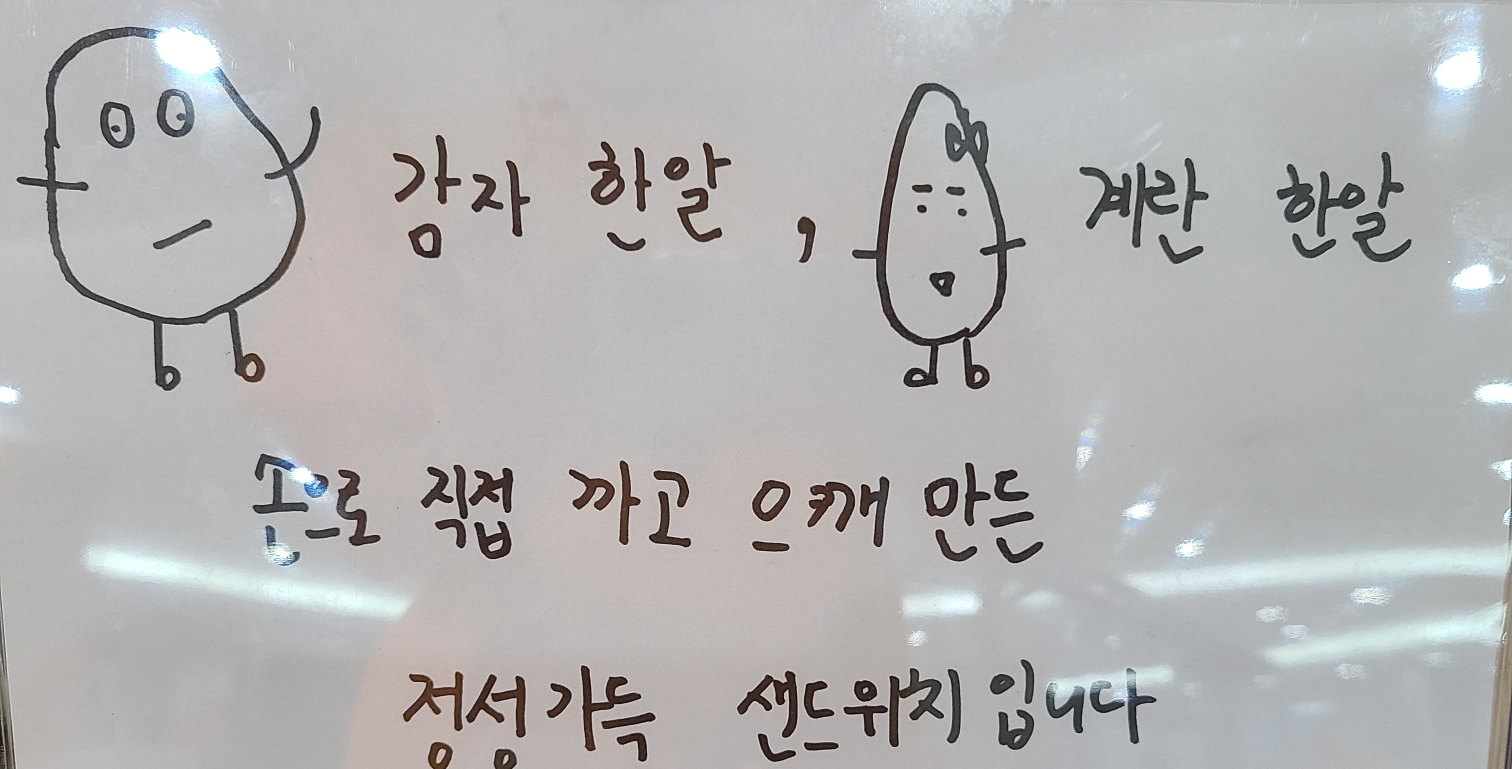 감자 한알, 계란 한알
손으로 직접 까고 으깨 만든
정성가득 샌드위치 입니다